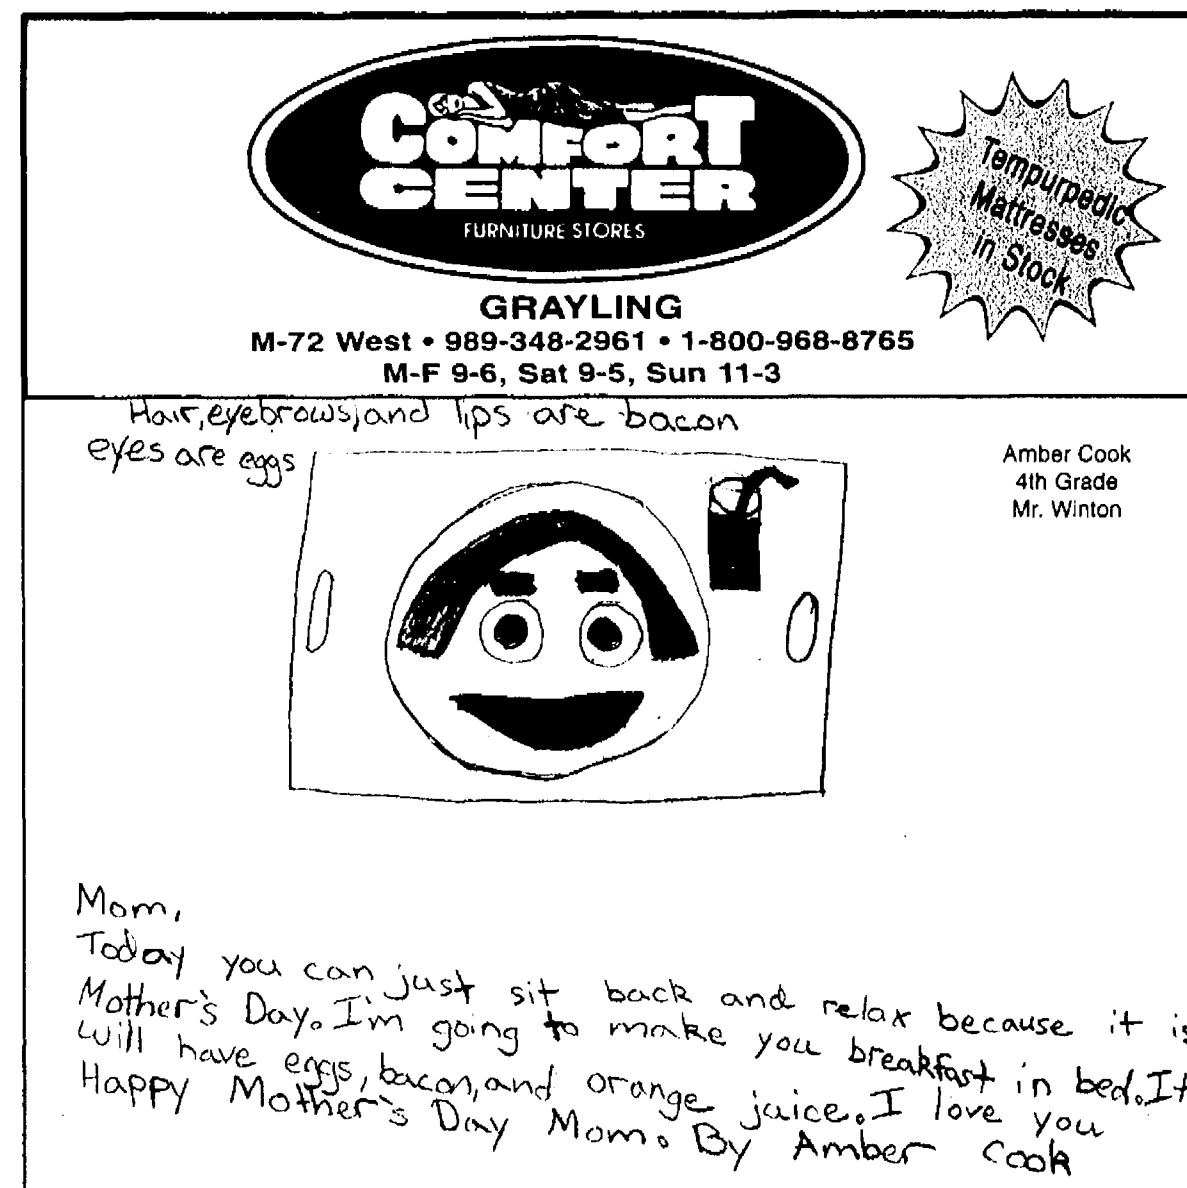 COMFORT
CENTER
FURNITURE STORES
Tempurpedic
Mattresses
in Stock
GRAYLING
M-72 West • 989-348-2961 • 1-800-968-8765
M-F 9-6, Sat 9-5, Sun 11-3
Hair, eyebrows, and lips are bacon
eyes are eggs
Amber Cook
4th Grade
Mr. Winton
Mom,
Today you can just sit back and relax because it is
Mother's Day. I'm going to make you breakfast in bed. It
will have eggs, bacon, and orange juice. I love you
Happy Mother's Day Mom. By Amber Cook